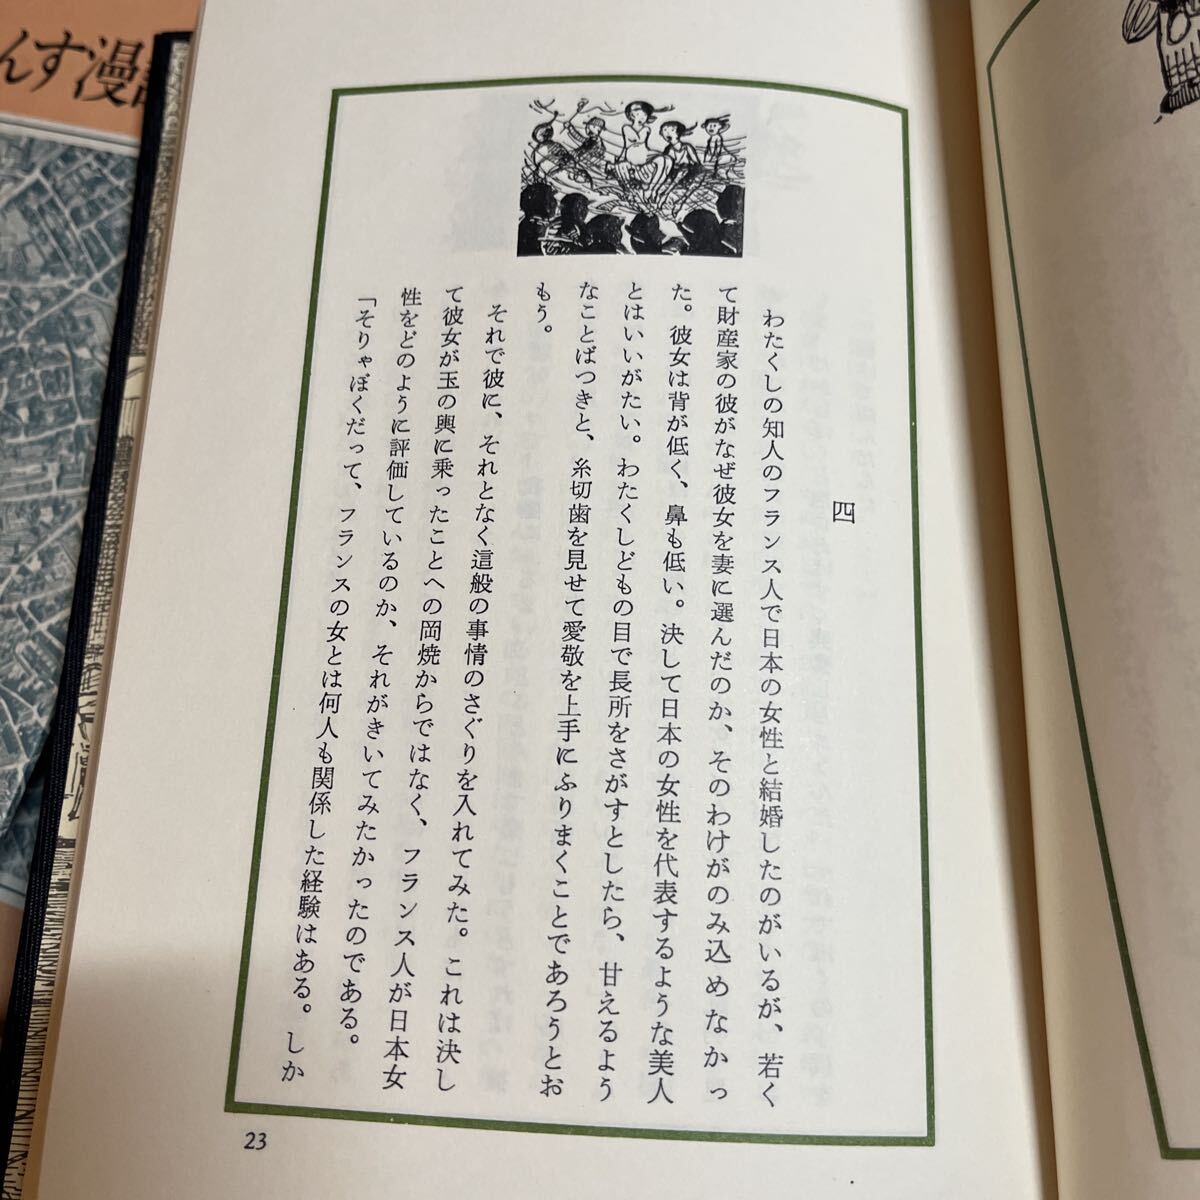 んす漫
四
わたくしの知人のフランス人で日本の女性と結婚したのがいるが、若く
て財産家の彼がなぜ彼女を妻に選んだのか、そのわけがのみ込めなかっ
た。彼女は背が低く、鼻も低い。決して日本の女性を代表するような美人
とはいいがたい。わたくしどもの目で長所をさがすとしたら、甘えるよう
なことばつきと、糸切歯を見せて愛敬を上手にふりまくことであろうとお
もう。
それで彼に、それとなく這般の事情のさぐりを入れてみた。これは決し
て彼女が玉の輿に乗ったことへの岡焼からではなく、フランス人が日本女
性をどのように評価しているのか、それがきいてみたかったのである。
「そりゃぼくだって、フランスの女とは何人も関係した経験はある。しか
23